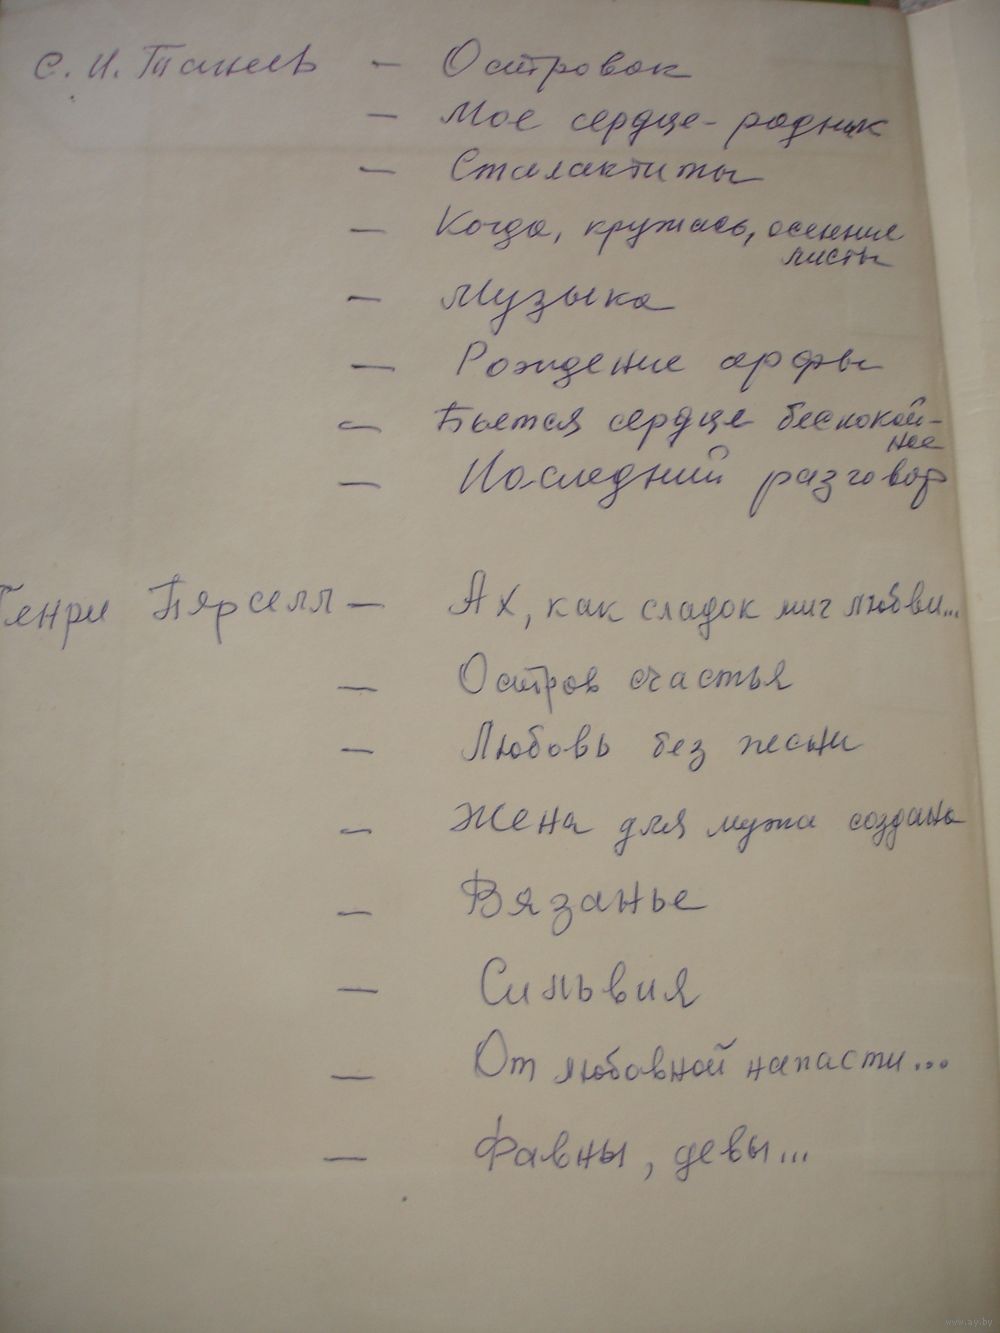 С. И. Танеев — Островок
— Мое сердце - родник
— Сталактиты
— Когда, кружась, осенние
листы
— Музыка
— Рождение арфы
— Бьется сердце беспокой-
ное
— Последний разговор
Генри Пёрселл — Ах, как сладок миг любви...
— Остров счастья
— Любовь без песни
— Жена для мужа создана
— Вязанье
— Сильвия
— От любовной напасти...
— Фавны, девы...
www.ay.by